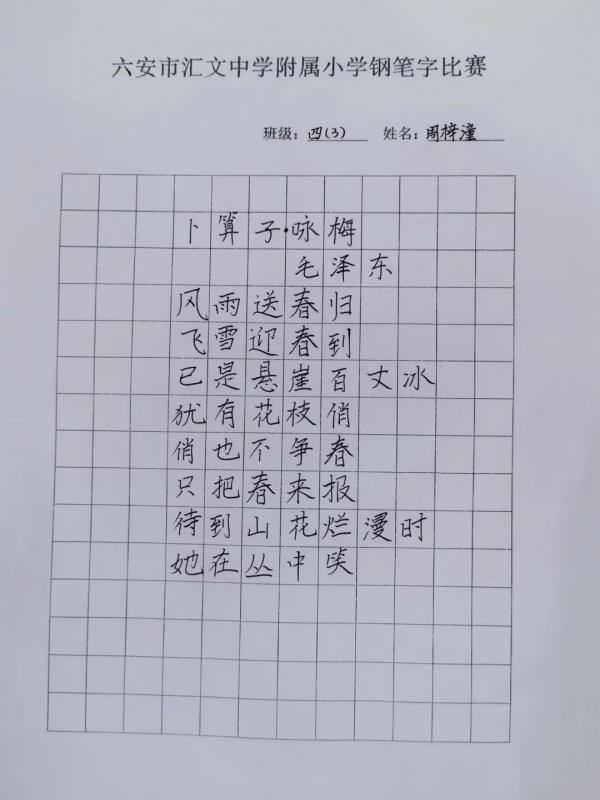 六安市汇文中学附属小学钢笔字比赛
班级：四(3) 姓名：周梓潼
卜算子·咏梅
毛泽东
风雨送春归
飞雪迎春到
已是悬崖百丈冰
犹有花枝俏
俏也不争春
只把春来报
待到山花烂漫时
她在丛中笑